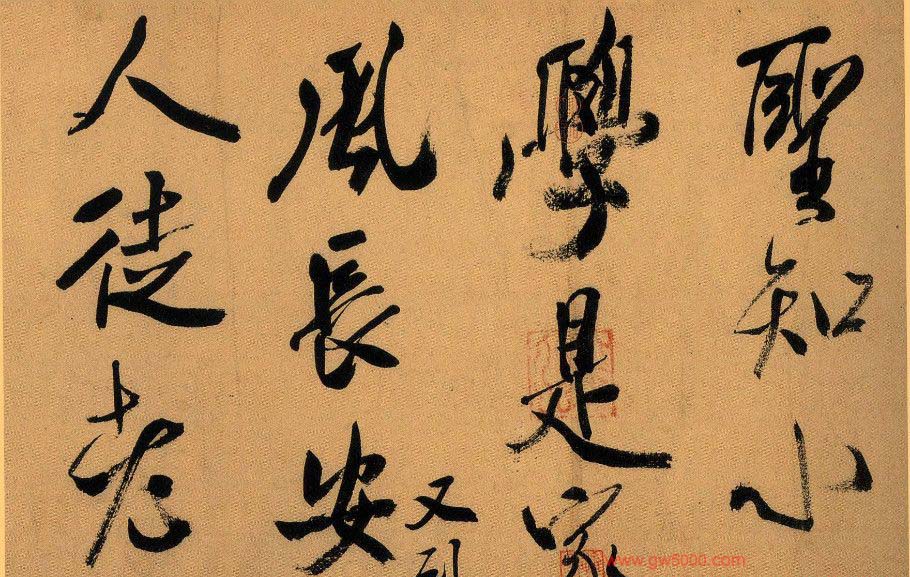 聖知小
學是家
又到
風長安
人徒老
www.gw5000.com